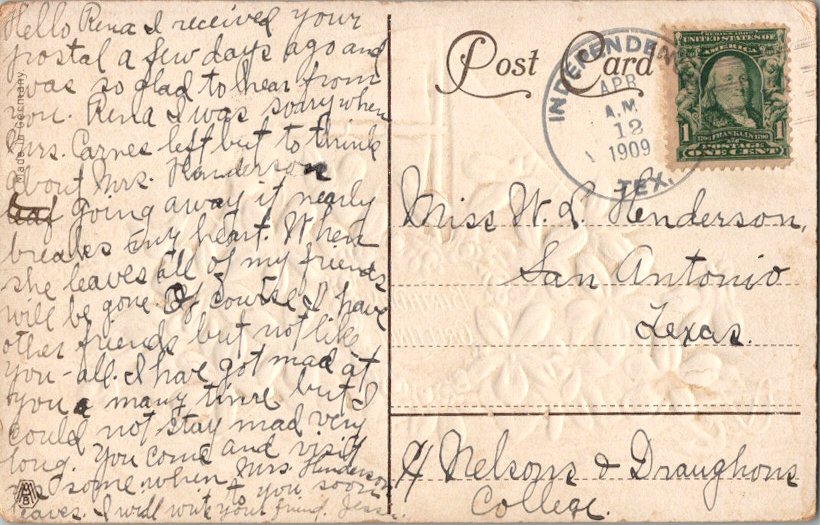 Hello Rena I received your
postal a few days ago and
was so glad to hear from
you. Rena I was sorry when
Mrs. Carnes left but to think
about Mrs. Handerson
going away it nearly
breakes my heart. When
she leaves all of my friends
will be gone. Of course I have
other friends but not like
you-all. I have got mad at
you a many time but I
could not stay mad very
long. You come and visit
some when Mrs. Henderson
leaves. I will write to you soon
your friend, Jess
Made in Germany
Post Card
INDEPENDEN
APR
A.M.
12
1909
TEX.
UNITED STATES OF
AMERICA
1 FRANKLIN 1
POSTAGE
ONE CENT
Miss W. L. Henderson,
San Antonio
Texas.
c/o Nelsons & Draughons
College.